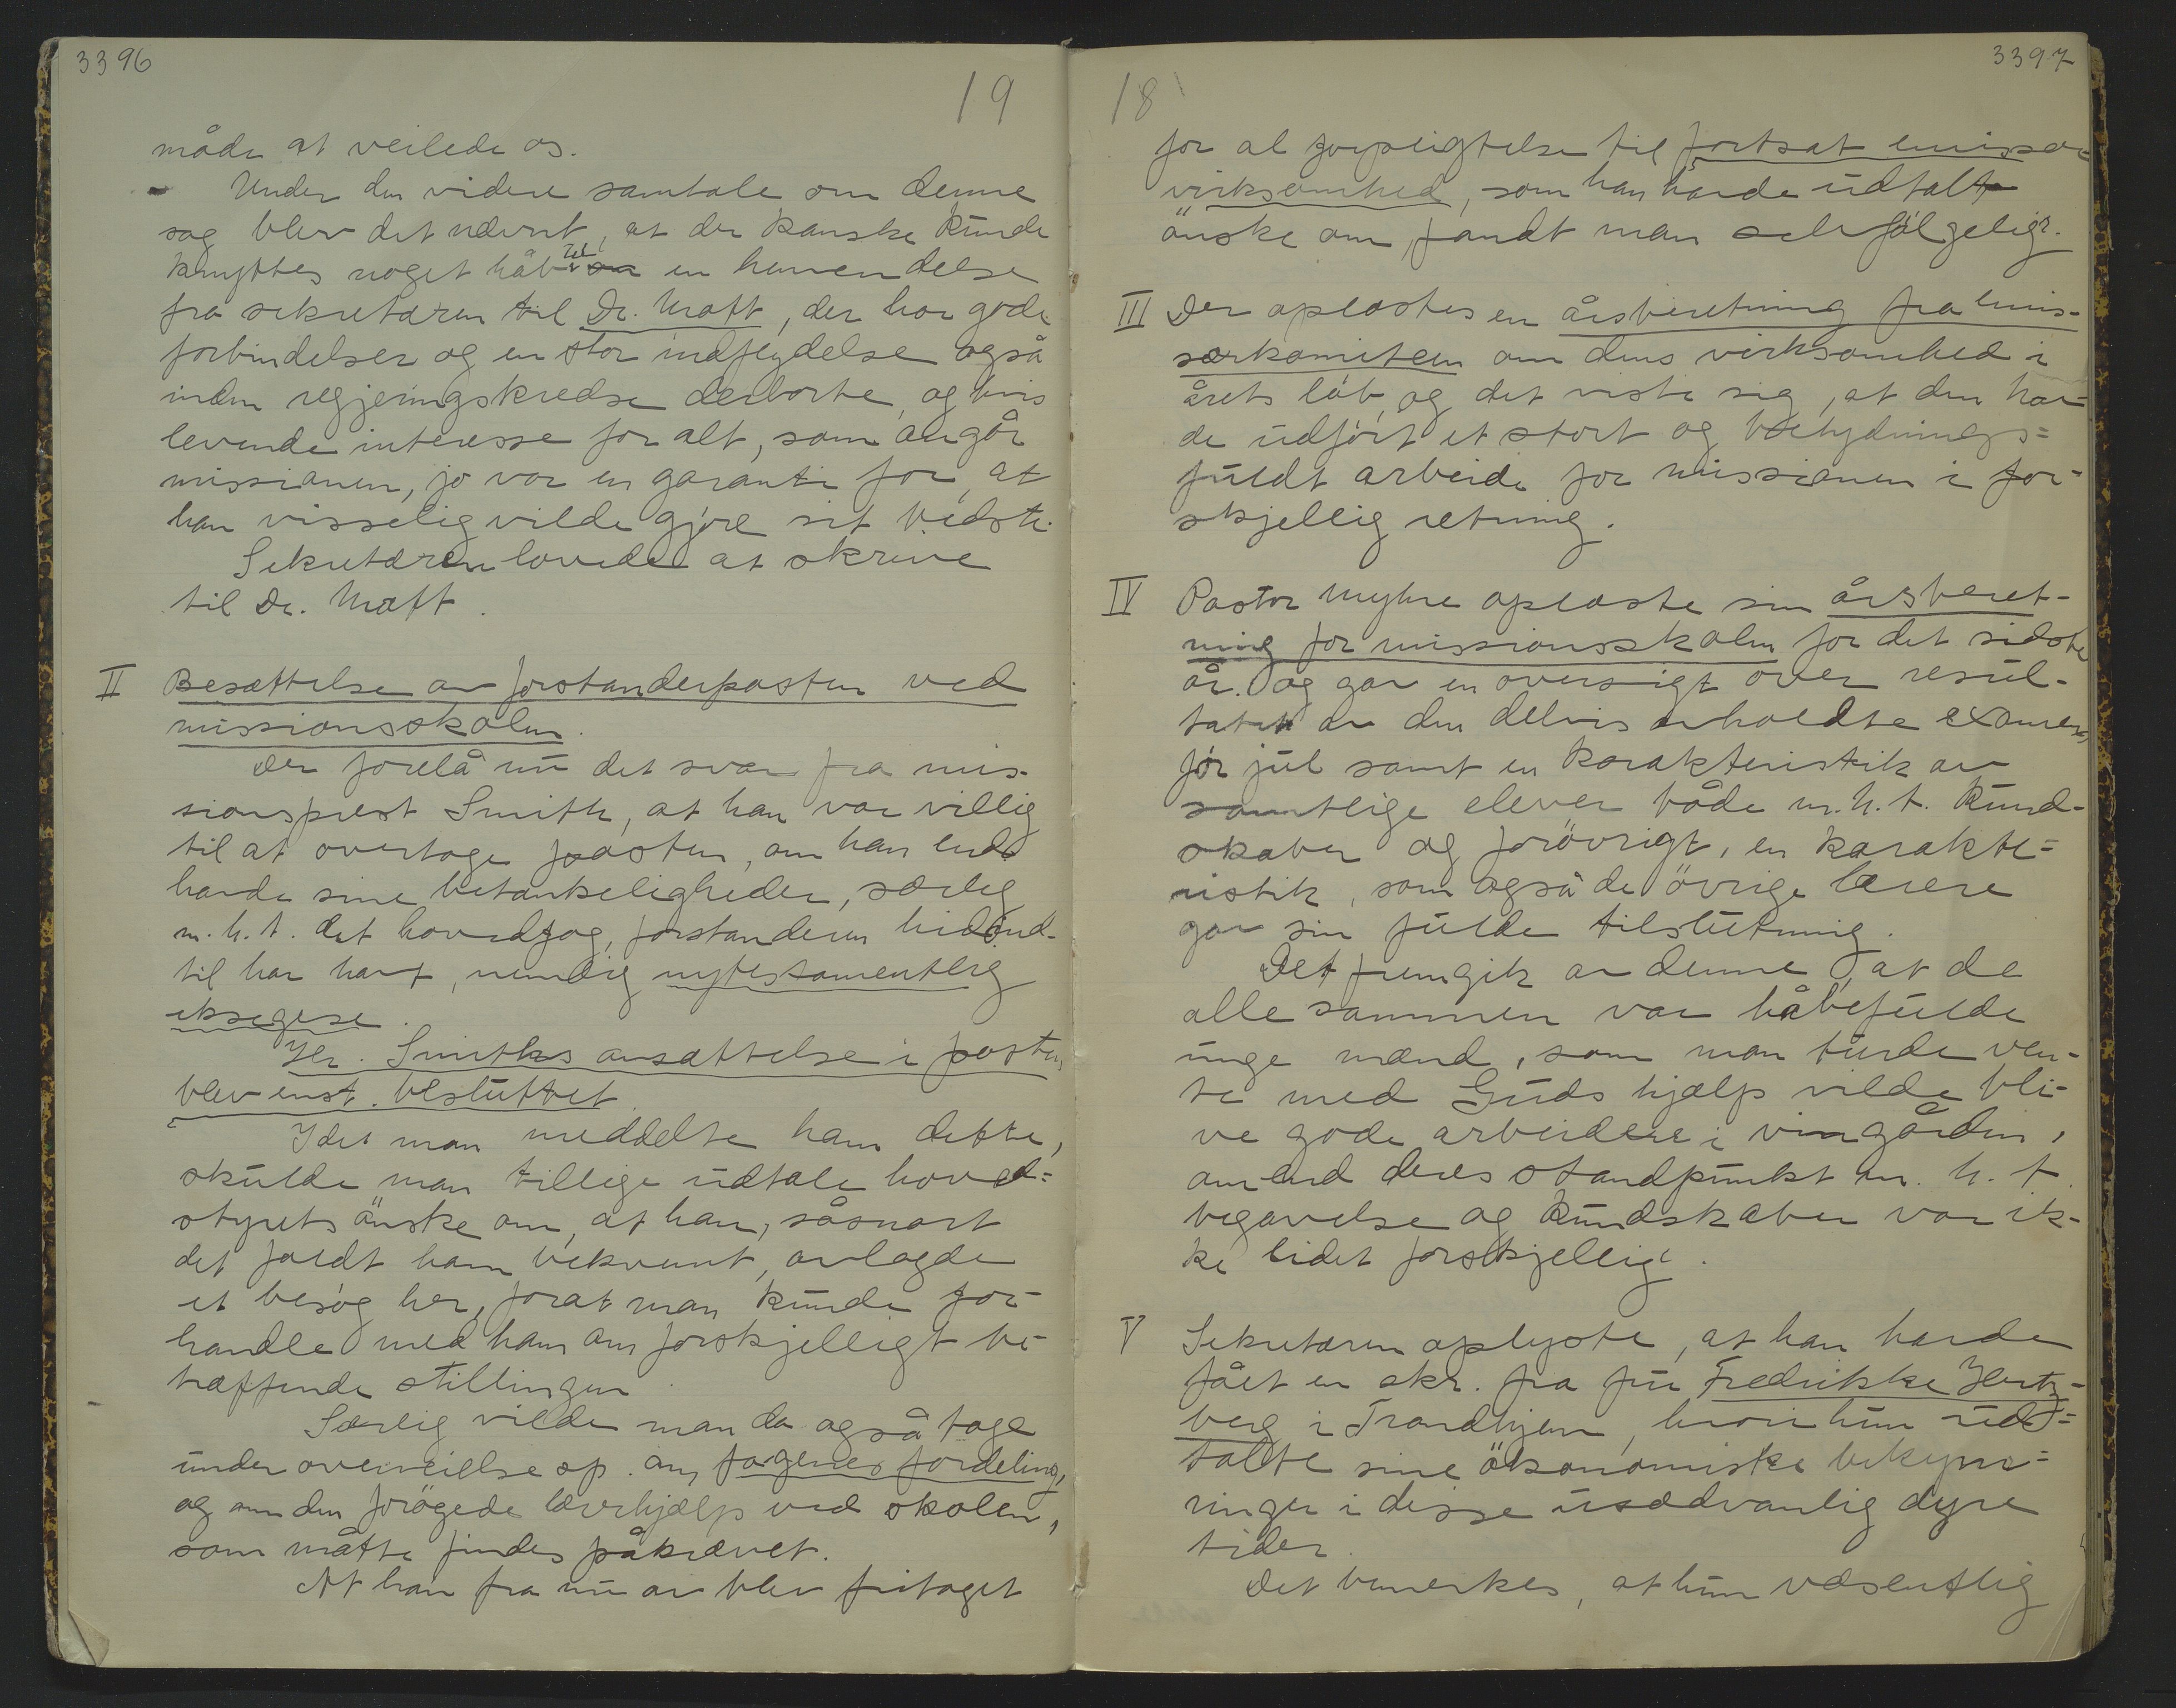 3396
19
måde at veilede os.
Under den videre samtale om denne
sag blev det nævnt, at der kanske kunde
knyttes noget håb til en henvendelse
fra sekretæren til Dr. Mott, der har gode
forbindelser og en stor indflydelse også
inden regjeringskredse derborte, og hvis
levende interesse for alt, som angår
missionen, jo var en garanti for, at
han visselig vilde gjøre sit bedste.
Sekretæren lovede at skrive
til Dr. Mott.
II Besættelse av forstanderposten ved
missionsskolen.
Der forelå nu det svar fra mis-
sionsprest Smith, at han var villig
til at overtage posten, om han end
havde sine betænkeligheder, særlig
m.h.t. det hovedfag, forstanderen hidind-
til har havt, nemlig nytestamentlig
eksegese.
Hr. Smiths ansættelse i posten
blev enst. besluttet.
Idet man meddelte ham dette,
skulde man tillige udtale hoved=
styrets ønske om, at han, såsnart
det faldt ham bekvemt, avlagde
et besøg her, forat man kunde for-
handle med ham om forskjelligt be-
træffende stillingen.
Særlig vilde man da også tage
under overveielse sp. om fagenes fordeling,
og om den forøgede lærerhjælp ved skolen,
som måtte findes påkrævet.
At han fra nu av blev fritaget
3397
18
for al forpligtelse til fortsat emissær
virksomhed, som han havde udtalt
ønske om, fandt man selvfølgelig.
III Der oplæstes en årsberetning fra emis=
særkomiteen om dens virksomhed i
årets løb, og det viste sig, at den hav-
de udført et stort og betydnings=
fuldt arbeide for missionen i for-
skjellig retning.
IV Pastor Myhre oplæste sin årsberet-
ning for missionsskolen for det sidste
år. og gav en oversigt over resul-
tatet av den delvis avholdte examen
før jul samt en karakteristik av
samtlige elever både m.h.t. kund-
skaber og forøvrigt, en karakte=
ristik, som også de øvrige lærere
gav sin fulde tilslutning.
Det fremgik av denne, at de
alle sammen var håbefulde
unge mænd, som man turde ven-
te med Guds hjælp vilde bli-
ve gode arbeidere i vingården,
om end deres standpunkt m.h.t.
begavelse og kundskaber var ik-
ke lidet forskjellig.
V Sekretæren oplyste, at han havde
fået en skr. fra fru Fredrikke Hertz-
berg i Trondhjem, hvori hun ud=
talte sine økonomiske bekym=
ringer i disse usædvanlig dyre
tider.
Det bemerkes, at hun væsentlig